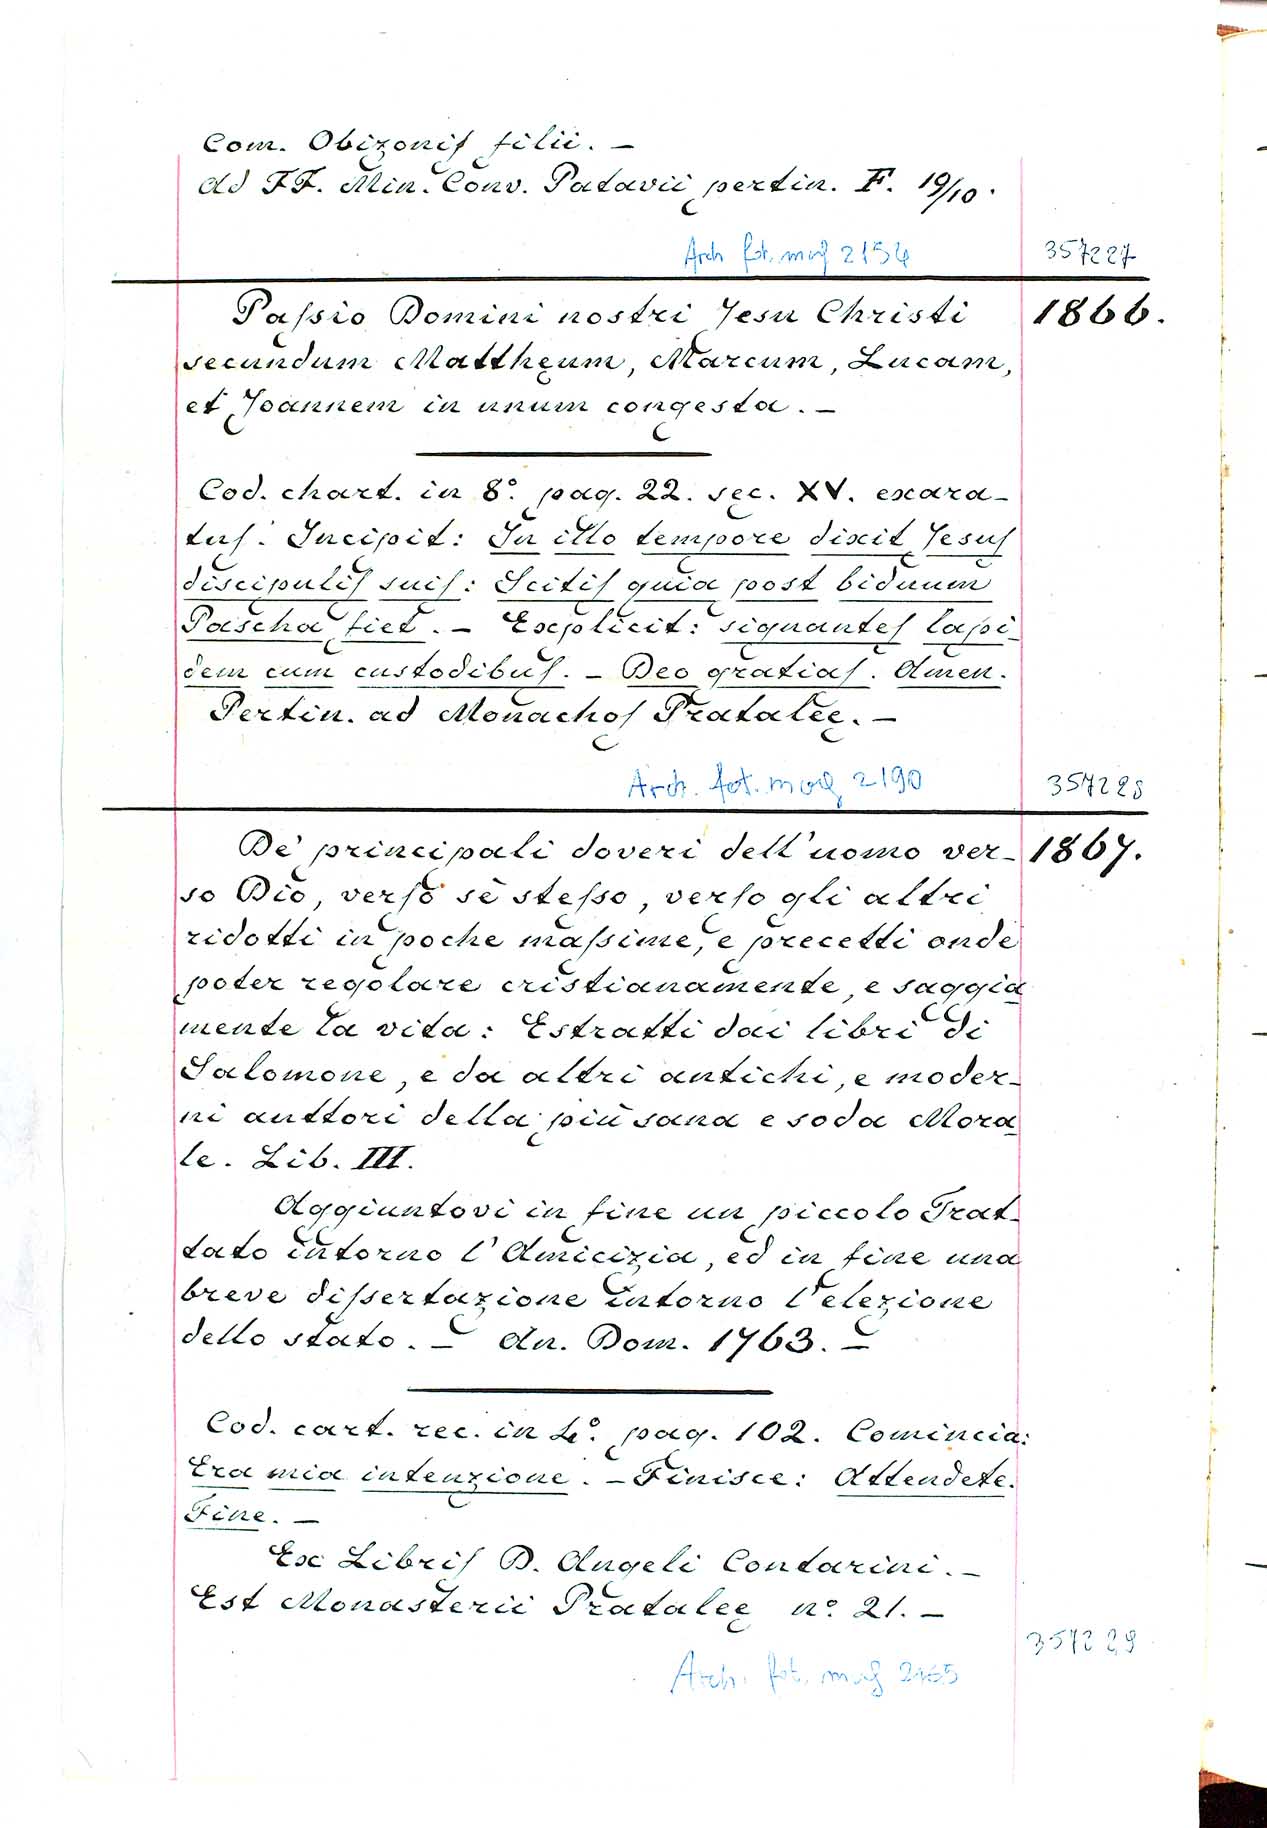 Com. Obizonis filii. –
Ad FF. Min. Conv. Patavii pertin. F. 19/10.
Arch. fot. mag 2154 357227
Passio Domini nostri Jesu Christi 1866.
secundum Matthęum, Marcum, Lucam,
et Joannem in unum congesta. –
Cod. chart. in 8º. pag. 22. sec. XV. exara-
tus. Incipit: In illo tempore dixit Jesus
discipulis suis: Scitis quia post biduum
Pascha fiet. – Explicit: signantes lapi-
dem cum custodibus. – Deo gratias. Amen.
Pertin. ad Monachos Pratalęę. –
Arch. fot. mag 2190 357228
De' principali doveri dell'uomo ver- 1867.
so Dio, verso sè stesso, verso gli altri
ridotti in poche massime, e precetti onde
poter regolare cristianamente, e saggia
mente la vita: Estratti dai libri di
Salomone, e da altri antichi, e moder-
ni auttori della più sana e soda Mora-
le. Lib. III.
Aggiuntovi in fine un piccolo Trat-
tato intorno l'Amicizia, ed in fine una
breve dissertazione intorno l'elezione
dello stato. – An. Dom. 1763. –
Cod. cart. rec. in 4º. pag. 102. Comincia:
Era mia intenzione. – Finisce: Attendete.
Fine. –
Ex Libris D. Angeli Contarini. –
Est Monasterii Pratalęę nº. 21. –
357229
Arch. fot. mag 2165